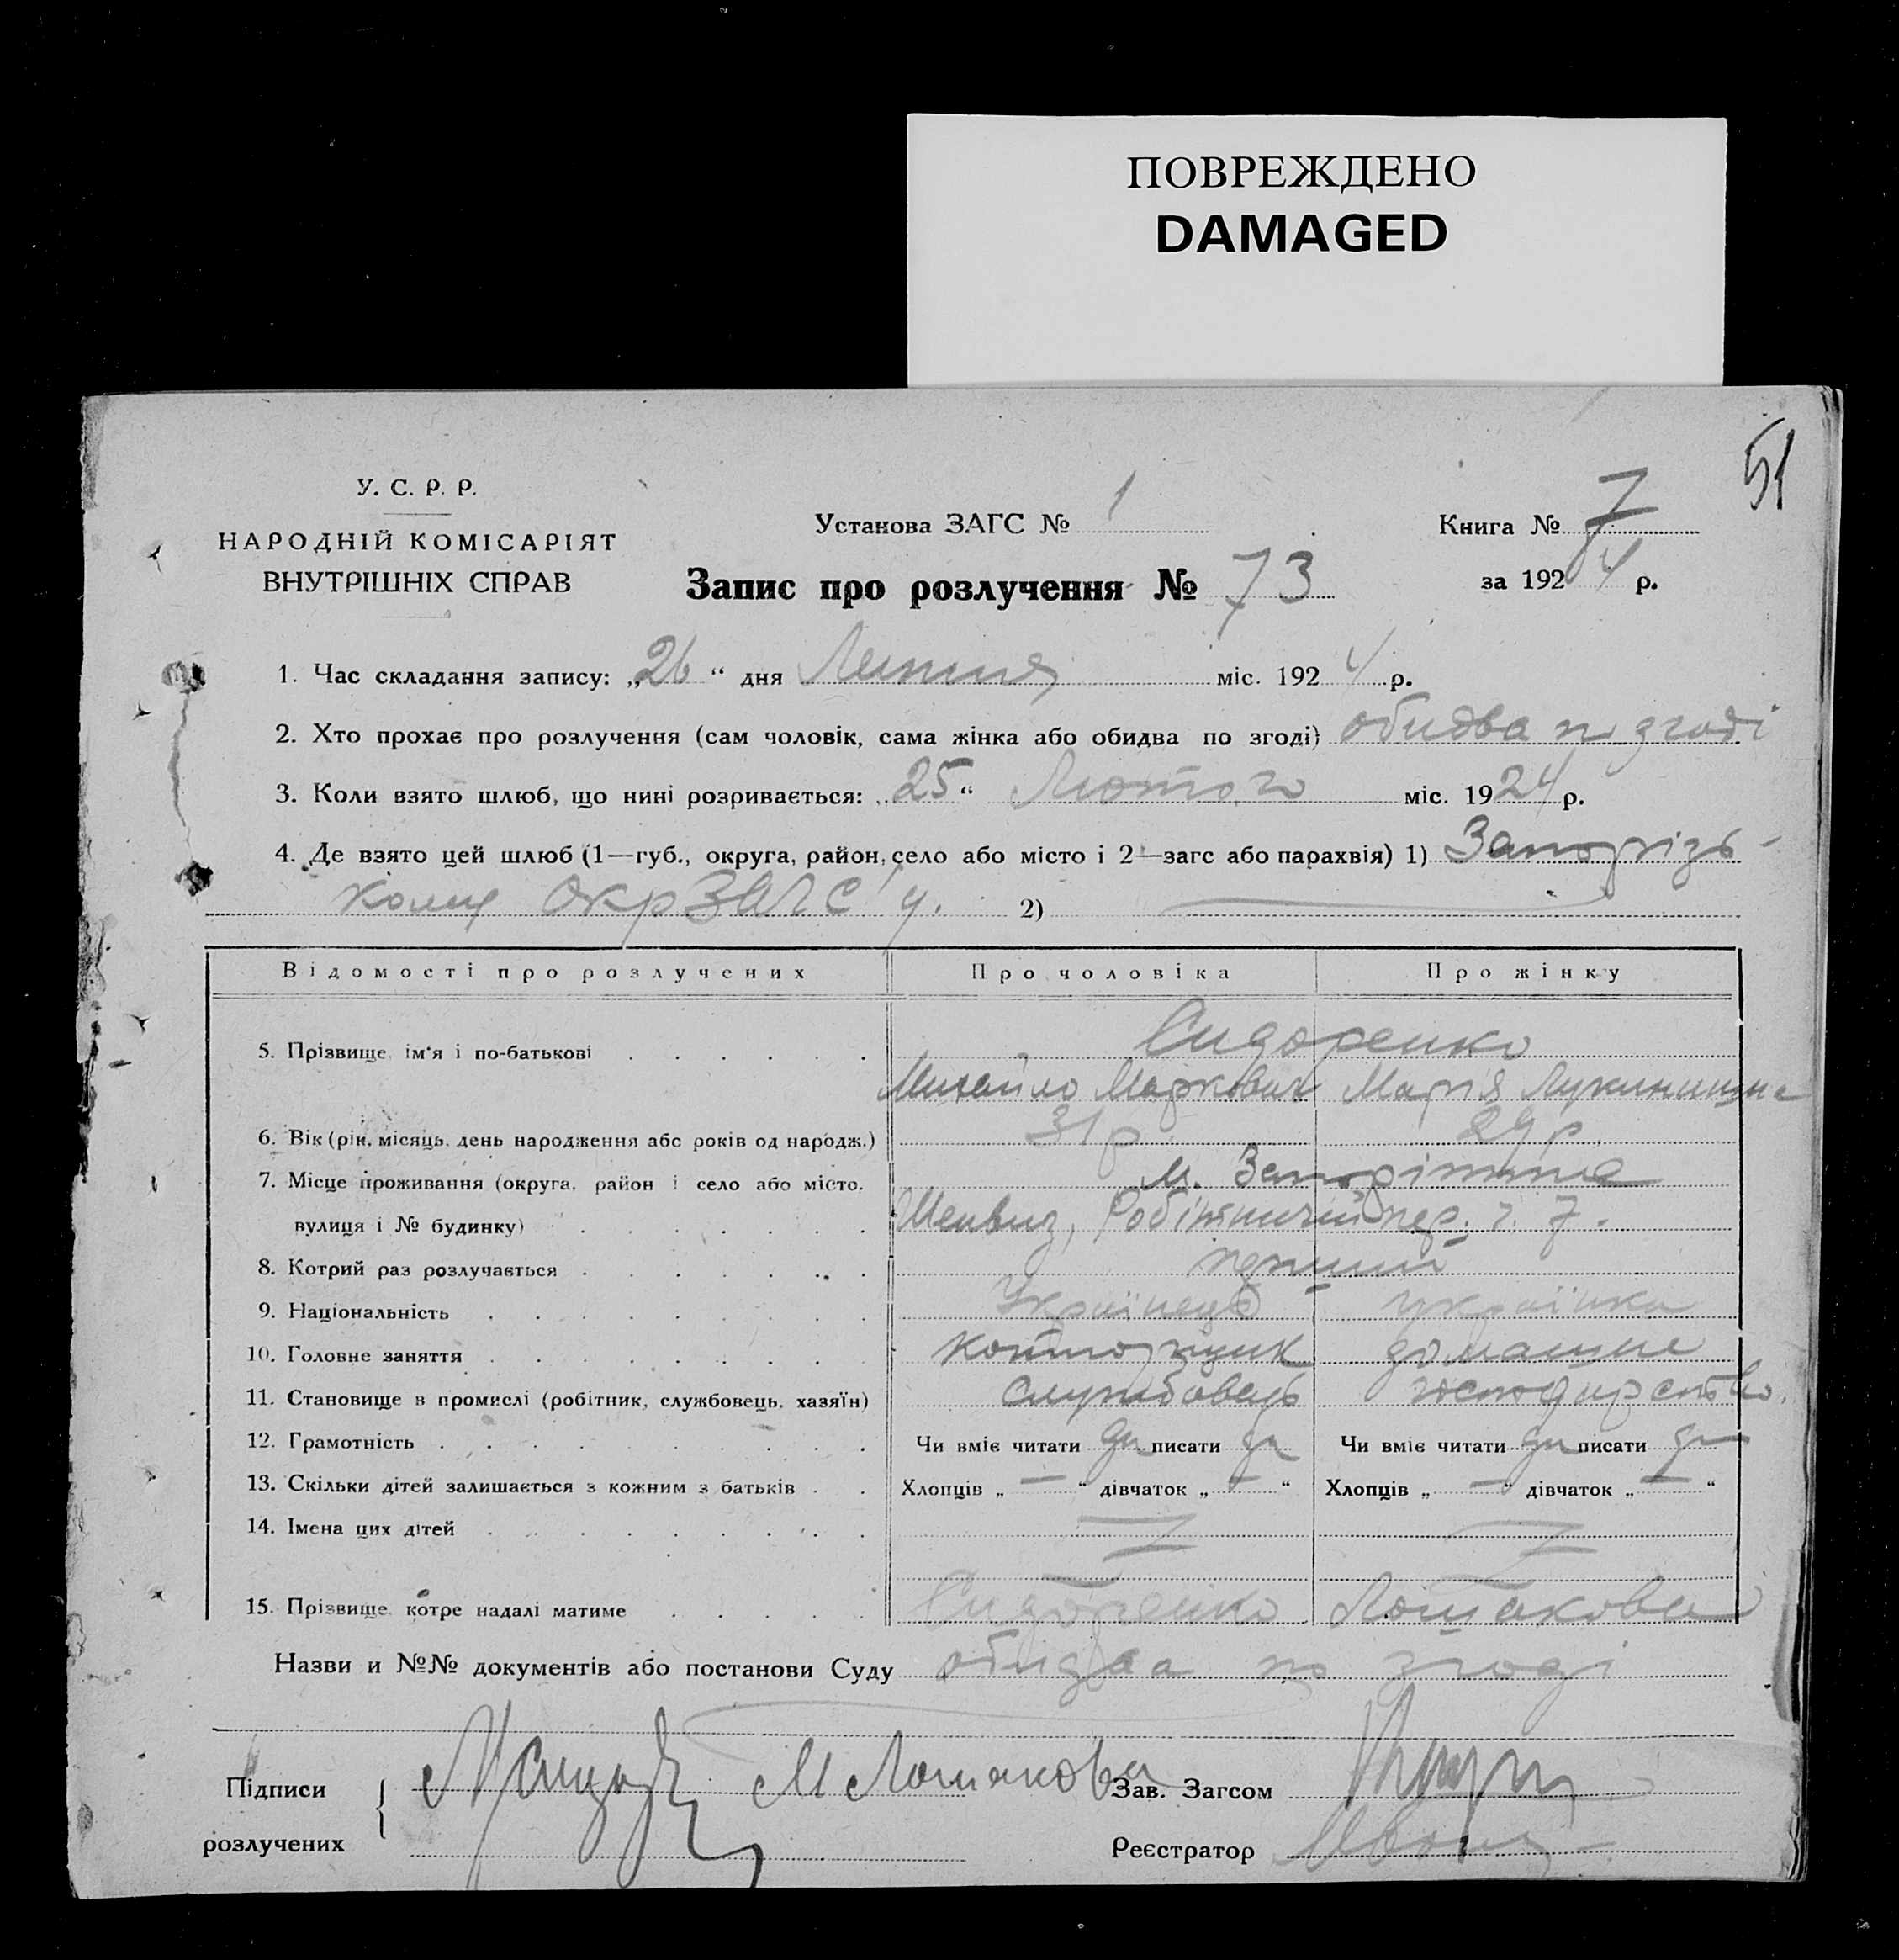 ПОВРЕЖДЕНО
DAMAGED
51
У. С. Р. Р.
НАРОДНІЙ КОМІСАРІЯТ
ВНУТРІШНІХ СПРАВ
Установа ЗАГС № 1
Книга № 7
за 1924 р.
Запис про розлучення № 73
1. Час складання запису: „26“ дня Липня міс. 1924 р.
2. Хто прохає про розлучення (сам чоловік, сама жінка або обидва по згоді) обидва по згоді
3. Коли взято шлюб, що нині розривається: „25“ Лютого міс. 1924 р.
4. Де взято цей шлюб (1—губ., округа, район, село або місто і 2—загс або парахвія) 1) Запорізь-
кому ОкрЗАГС'у. 2)
Відомості про розлучених Про чоловіка Про жінку
5. Прізвище, ім'я і по-батькові Сидоренко
Михайло Маркович Марія Лукинишна
6. Вік (рік, місяць, день народження або років од народж.) 31 р. 29 р.
7. Місце проживання (округа, район і село або місто, м. Запоріжжя
вулиця і № будинку) Робітничий пер. ч. 7.
8. Котрий раз розлучається перший
9. Національність Українець українка
10. Головне заняття конторщик домашнє
11. Становище в промислі (робітник, службовець, хазяїн) службовець господарство.
12. Грамотність Чи вміє читати да писати да Чи вміє читати да писати да
13. Скільки дітей залишається з кожним з батьків Хлопців „ — “ дівчаток „ — “ Хлопців „ — “ дівчаток „ — “
14. Імена цих дітей
15. Прізвище, котре надалі матиме Сидоренко Лошакова
Назви и №№ документів або постанови Суду обидва по згоді
Підписи М Лошакова Зав. Загсом
розлучених Реєстратор